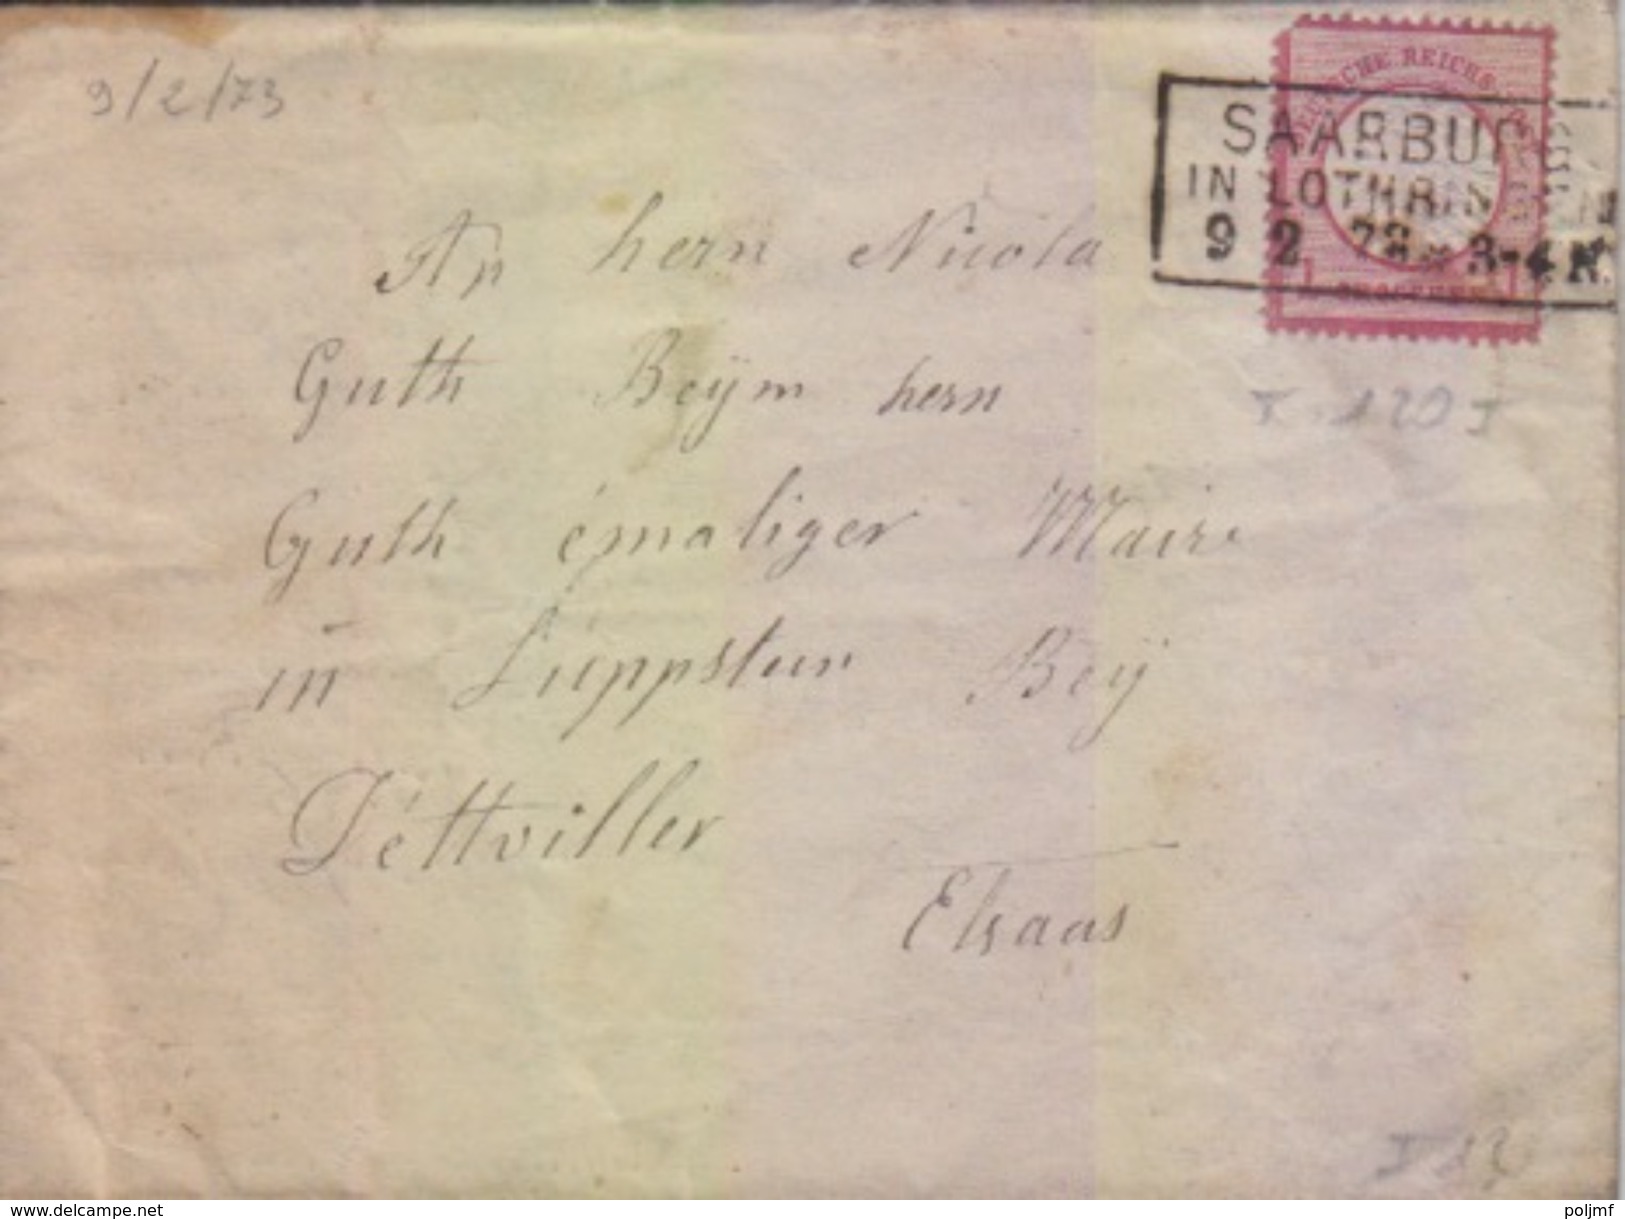 9/2/73
DEUTSCHE REICHS
SAARBURG
IN LOTHRINGEN
9 2 73 3-4 N.
An hern Nicola
Guth Beÿm hern
Guth émaliger Maire
in Lüppstein Beÿ
Déttviller
Elsaas
I 120 I
I 12
www.delcampe.net
poljmf